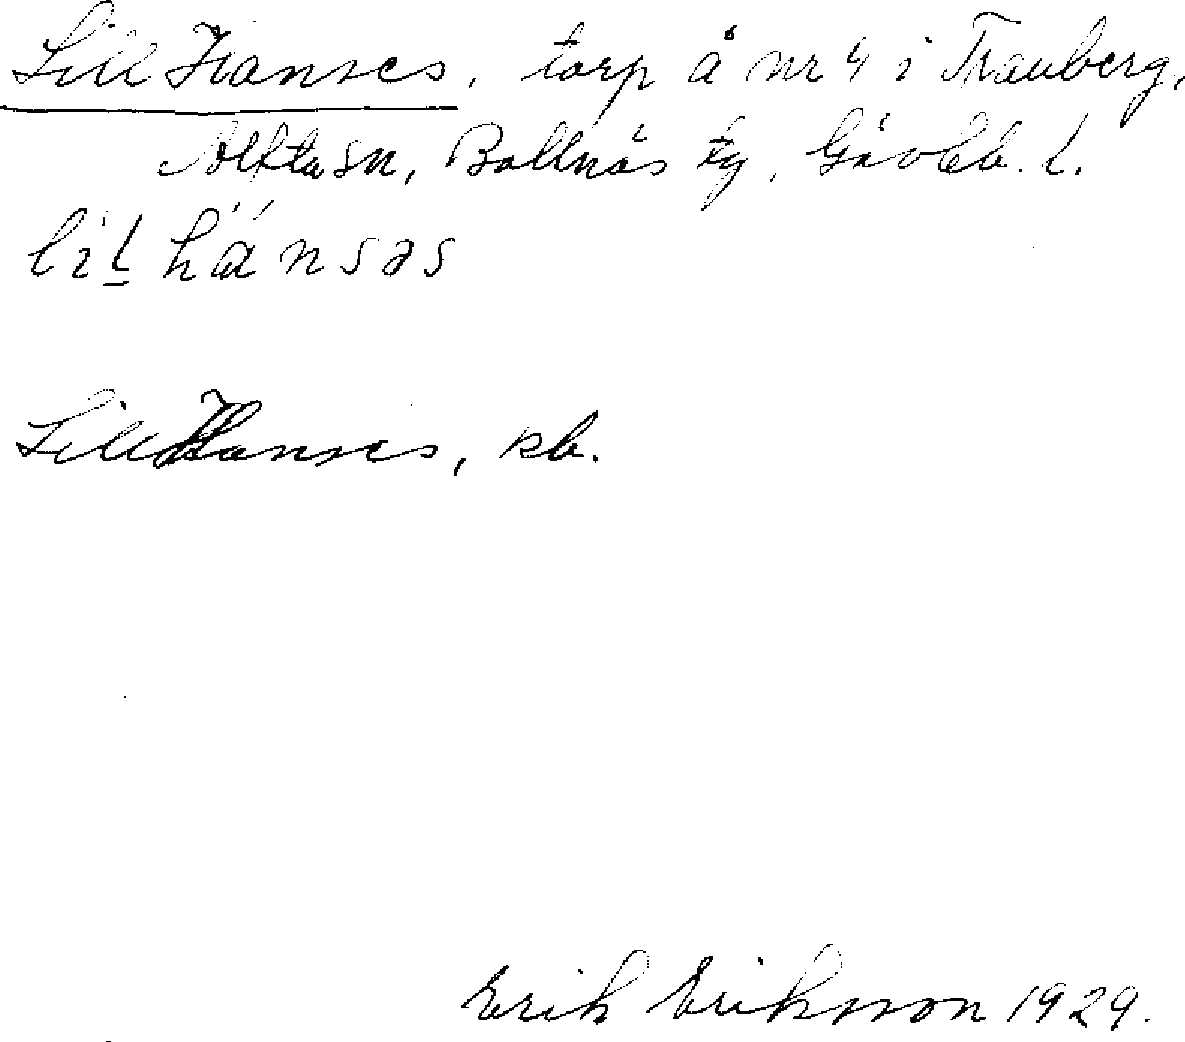 Lill Hanses, torp å nr 4 i Tranberg,
Alfta sn, Bollnäs tg, Gävleb. l.
lil hánsəs
Lill Hanses, kb.
Erik Eriksson 1929.